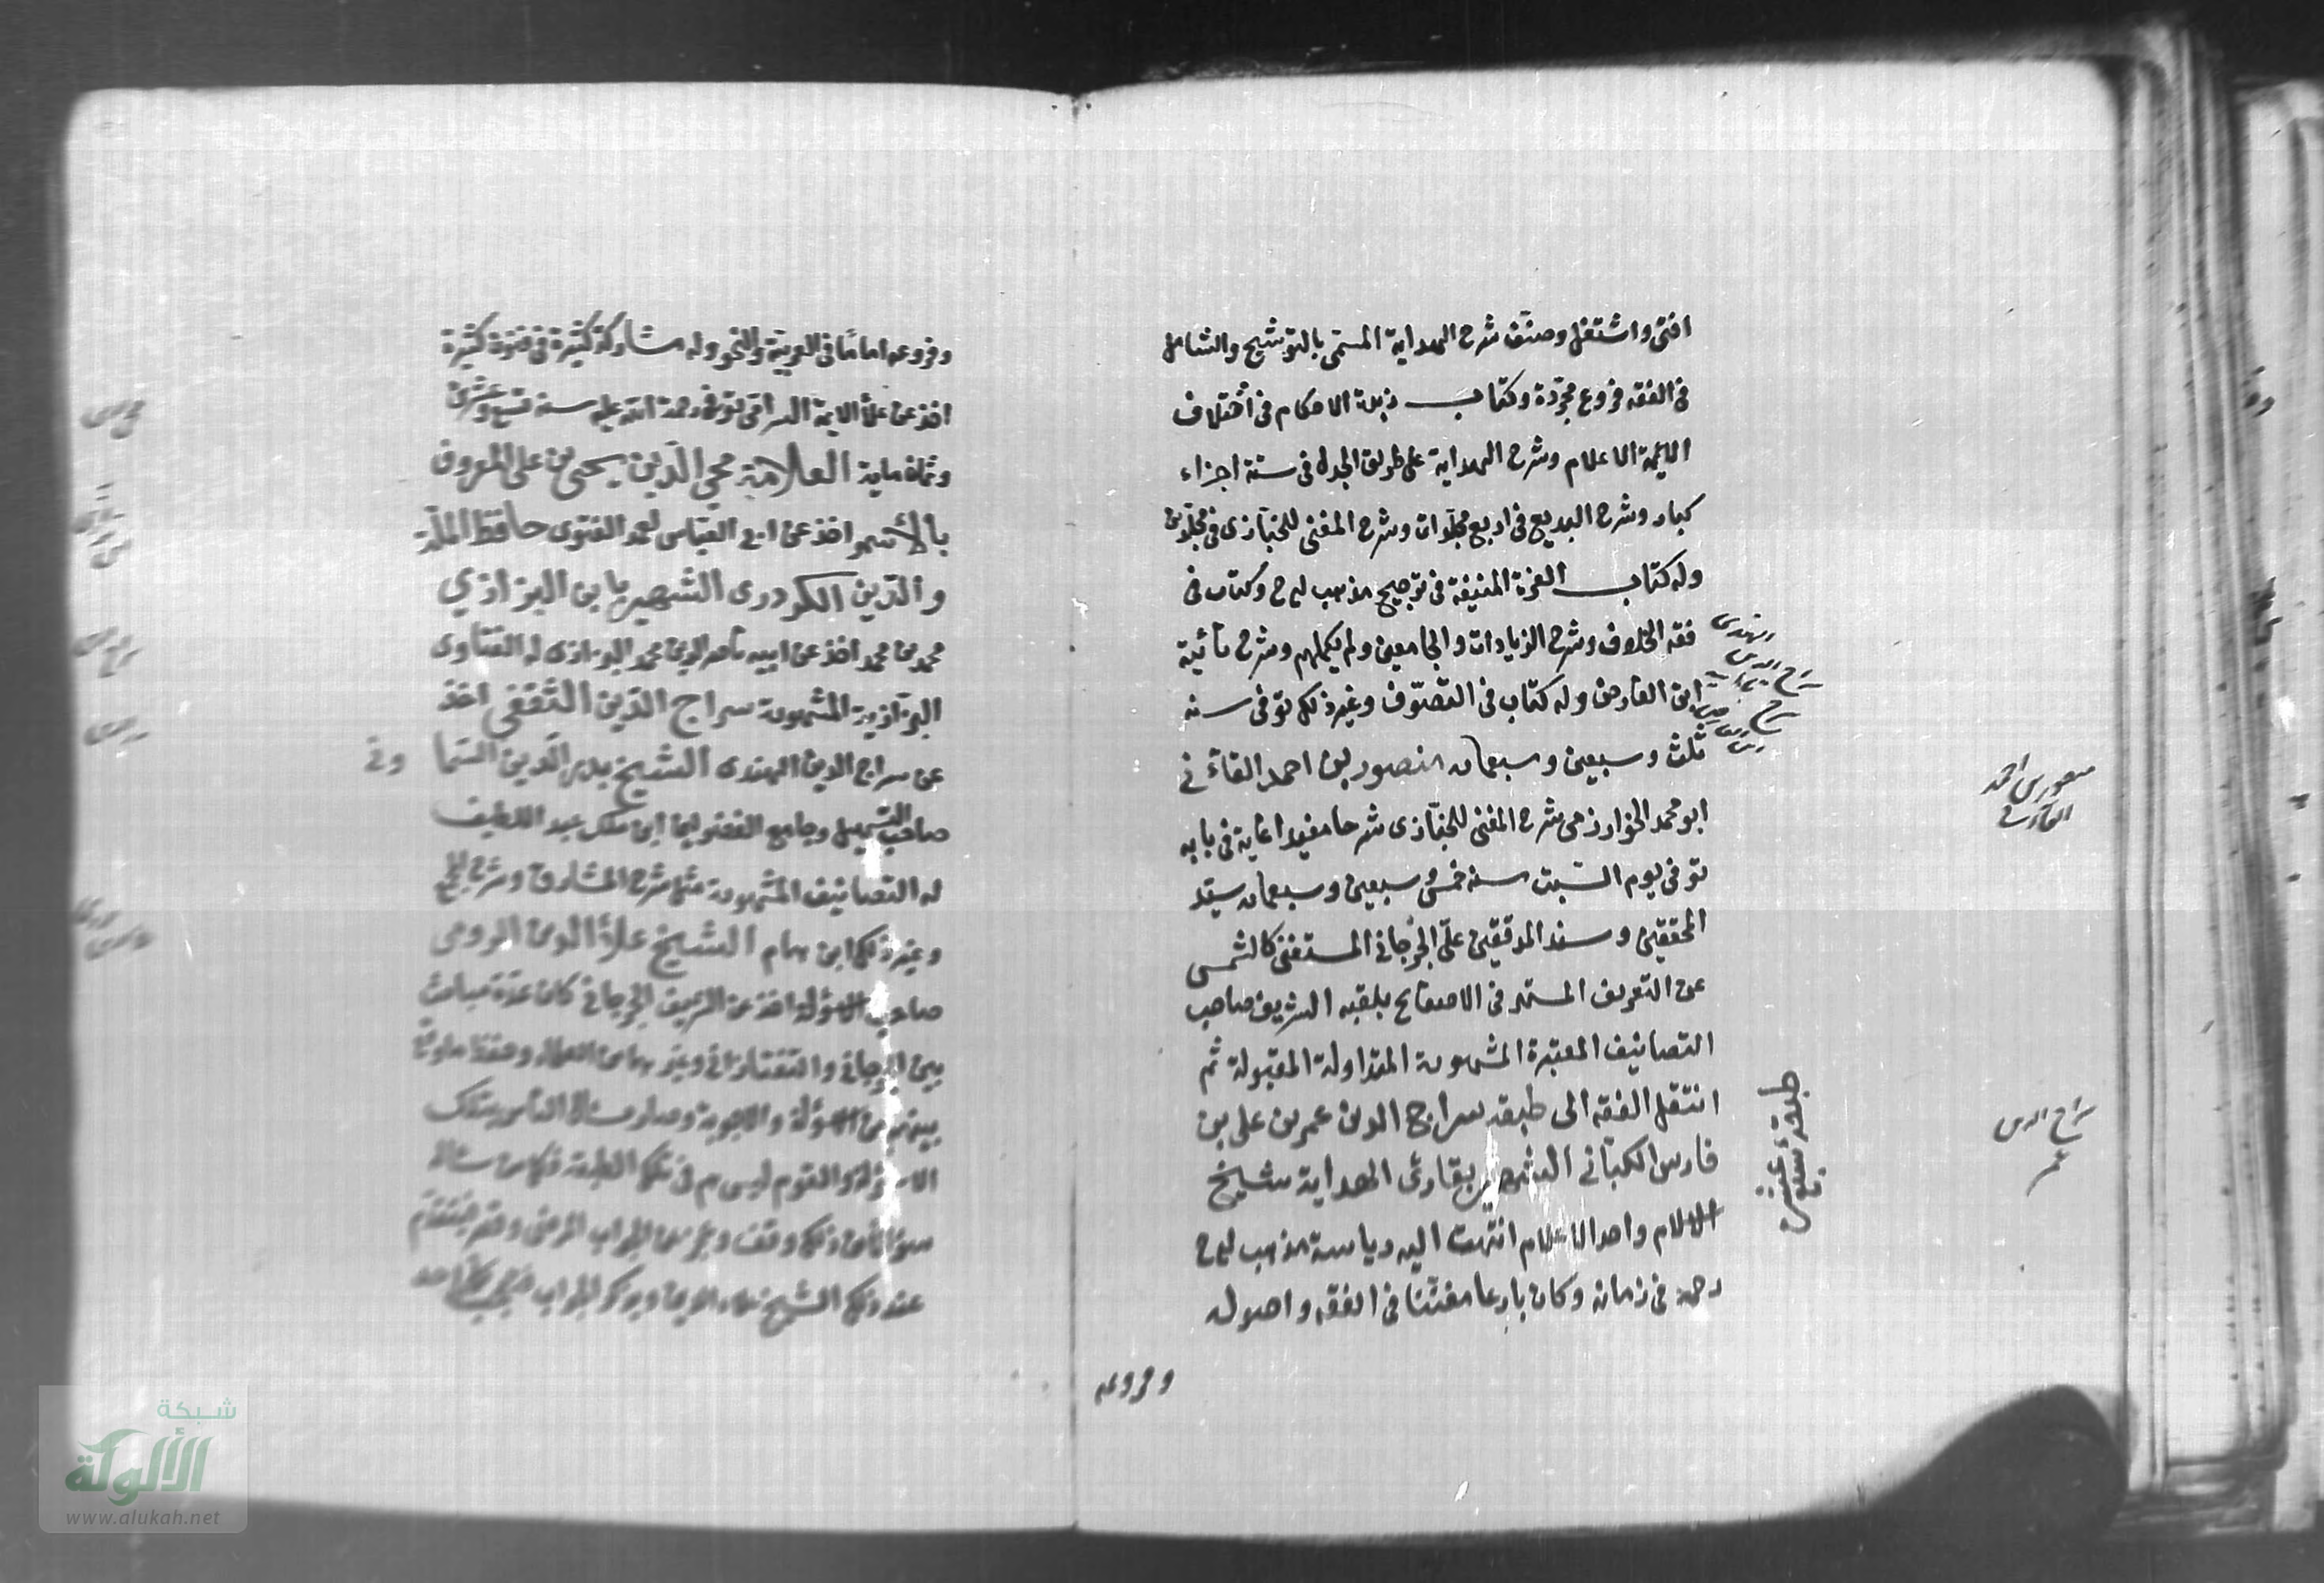 افتى واشتغل وصنّف شرح الهداية المسمّى بالتوشيح والشامل
فى الفقه فروع مجرّدة وكتاب زبدة الاحكام فى اختلاف
الايمة الاعلام وشرح الهداية على طريق الجدل فى ستة اجزاء
كبار وشرح البديع فى اربع مجلّدات وشرح المغنى للخبّازى فى مجلّدين
وله كتاب الغرة المنيفة فى ترجيح مذهب ابى ح وكتاب فى
فقه الخلاف وشرح الزيادات والجامعين ولم يكملهم وشرح تائية
ابن الفارض وله كتاب فى التصوّف وغير ذلك توفى سنة
ثلث وسبعين وسبعمائة منصور بن احمد القاءنى
ابو محمد الخوارزمى شرح المغنى للخبّازى شرحا مفيدا غاية فى بابه
توفى يوم السّبت سنة خمس وسبعين وسبعمائة سيّد
المحققين وسند المدققين علىّ الجرجانى المستغنى كالشمس
عن التعريف المشتهر فى الاصقاع بلقبه الشريف صاحب
التصانيف المعتبرة المشهورة المتداولة المقبولة ثم
انتقل الفقه الى طبقة سراج الدين عمر بن على بن
فارس الكنانى الشهير بقارئ الهداية شيخ
الاسلام واحد الاعلام انتهت اليه رياسة مذهب ابى ح
رحمه فى زمانه وكان بارعا مفننا فى الفقه واصوله
وفروعه
سراج الدين
الهندى
منصور بن احمد
القاءنى
سراج الدين
عمر
وفروعه اماما فى العربية والنحو وله مشاركة كثيرة فى فنون كثيرة
اخذ عن علاء الايمة السرافى توفى رحمة الله عليه سنة تسع وعشرين
وثمان ماية العلامة محيى الدّين يحيى بن على المعروف
بالأسمر اخذ عن ابى العبّاس احمد الغنوى حافظ الملّة
والدّين الكردرى الشهير بابن البزازي
محمد بن محمد اخذ عن ابيه ناصر الدين محمد البزازى له الفتاوى
البزازية المشهورة سراج الدّين الثقفى اخذ
عن سراج الدين الهندى الشيخ بدر الدّين السّما ونى
صاحب التسهيل وجامع الفصولين ابن ملك عبد اللطيف
له التصانيف المشهورة منها شرح المشارق وشرح المجمع
وغير ذلك ابن همام الشيخ علاء الدين الرومى
صاحب الاسؤلة اخذ عن الشريف الجرجانى كان عدة مباحث
بين الجرجانى والتفتازانى وغيرهما من العلماء وحفظ ما وقع
بينهم من الاسؤلة والاجوبة وصار يسئل الناس بتلك
الاسؤلة والقوم ليس هم فى تلك الطبقة فكل من سئاله
عند ذلك الشيخ علاء الدين ويذكر الجواب
شبكة
الألوكة
www.alukah.net